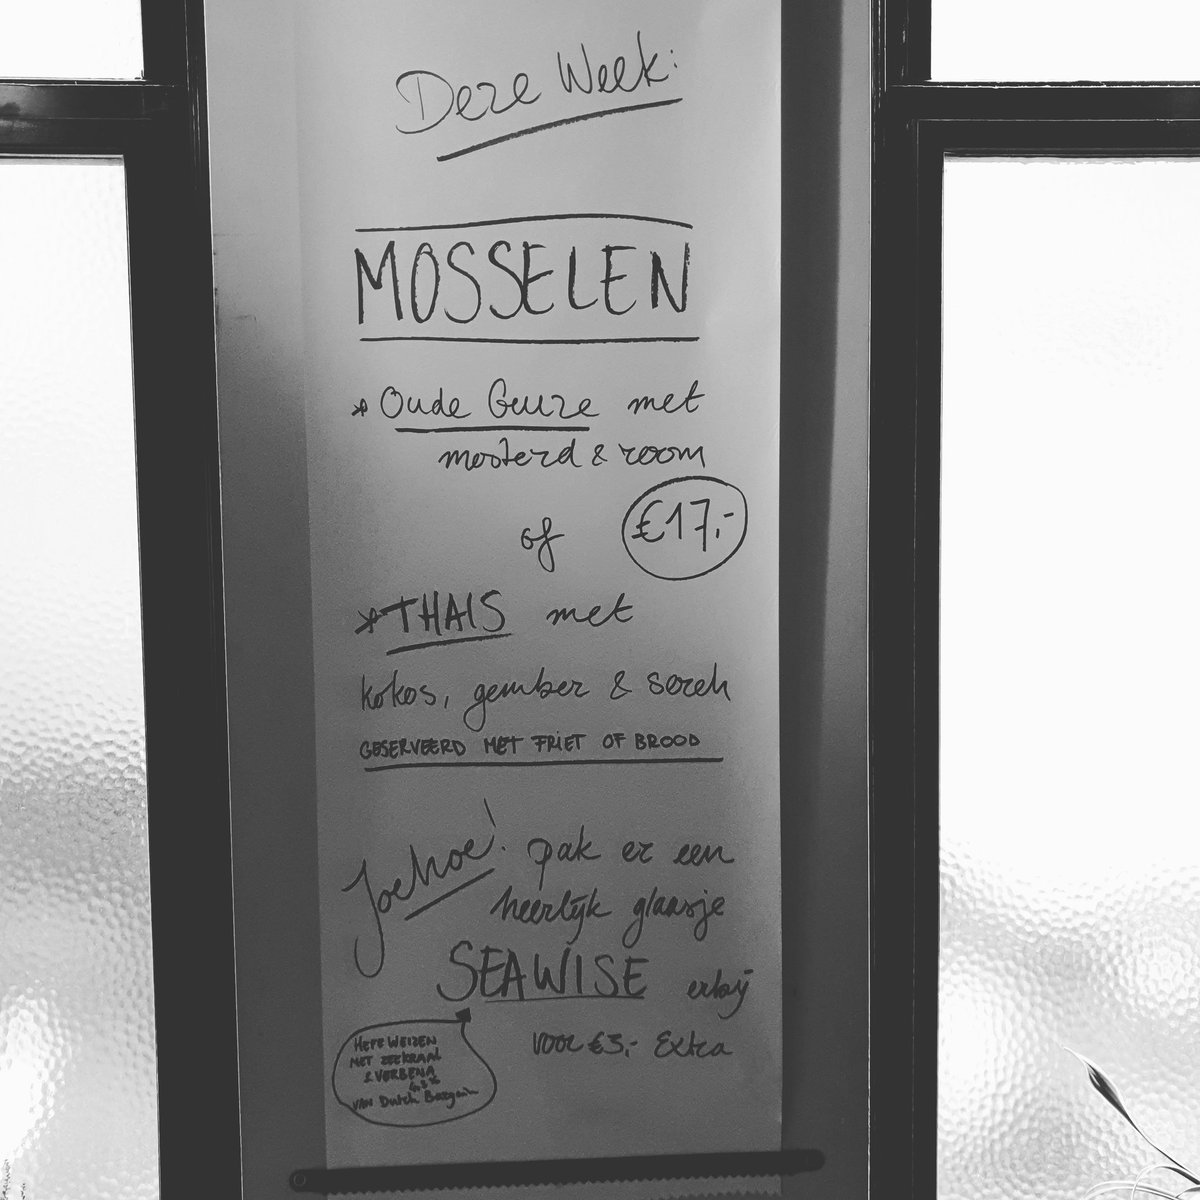 Deze Week:
MOSSELEN
* Oude Geuze met
mosterd & room
of €17,-
* THAIS met
kokos, gember & sereh
GESERVEERD MET FRIET OF BROOD
Joehoe! pak er een
heerlijk glaasje
SEAWISE erbij
voor €3,- Extra
HEFE WEIZEN
MET ZEEKRAAL
& VERBENA
4.3%
VAN Dutch Bargain